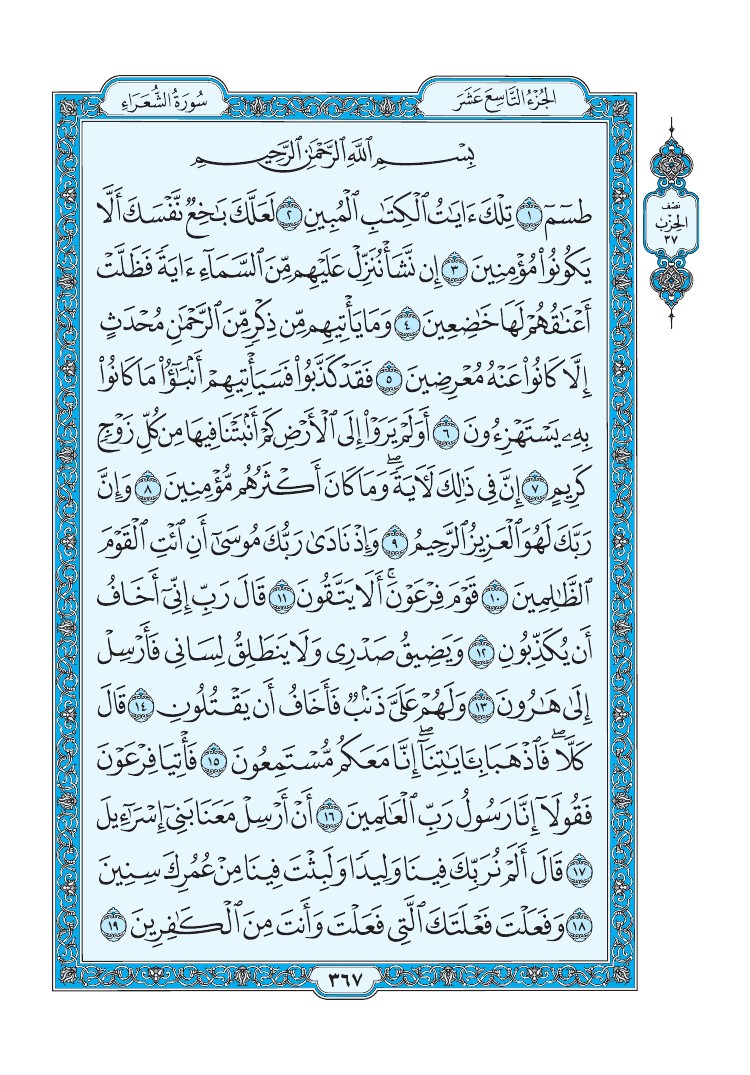 الجُزْءُ التَّاسِعَ عَشَرَ
سُورَةُ الشُّعَرَاءِ
بِسْمِ اللَّهِ الرَّحْمَٰنِ الرَّحِيمِ
طسٓمٓ ١ تِلْكَ ءَايَٰتُ ٱلْكِتَٰبِ ٱلْمُبِينِ ٢ لَعَلَّكَ بَٰخِعٌ نَّفْسَكَ أَلَّا
يَكُونُوا۟ مُؤْمِنِينَ ٣ إِن نَّشَأْ نُنَزِّلْ عَلَيْهِم مِّنَ ٱلسَّمَآءِ ءَايَةً فَظَلَّتْ
أَعْنَٰقُهُمْ لَهَا خَٰضِعِينَ ٤ وَمَا يَأْتِيهِم مِّن ذِكْرٍ مِّنَ ٱلرَّحْمَٰنِ مُحْدَثٍ
إِلَّا كَانُوا۟ عَنْهُ مُعْرِضِينَ ٥ فَقَدْ كَذَّبُوا۟ فَسَيَأْتِيهِمْ أَنۢبَٰٓؤُا۟ مَا كَانُوا۟
بِهِۦ يَسْتَهْزِءُونَ ٦ أَوَلَمْ يَرَوْا۟ إِلَى ٱلْأَرْضِ كَمْ أَنۢبَتْنَا فِيهَا مِن كُلِّ زَوْجٍ
كَرِيمٍ ٧ إِنَّ فِى ذَٰلِكَ لَءَايَةً ۖ وَمَا كَانَ أَكْثَرُهُم مُّؤْمِنِينَ ٨ وَإِنَّ
رَبَّكَ لَهُوَ ٱلْعَزِيزُ ٱلرَّحِيمُ ٩ وَإِذْ نَادَىٰ رَبُّكَ مُوسَىٰٓ أَنِ ٱئْتِ ٱلْقَوْمَ
ٱلظَّٰلِمِينَ ١٠ قَوْمَ فِرْعَوْنَ ۚ أَلَا يَتَّقُونَ ١١ قَالَ رَبِّ إِنِّىٓ أَخَافُ
أَن يُكَذِّبُونِ ١٢ وَيَضِيقُ صَدْرِى وَلَا يَنطَلِقُ لِسَانِى فَأَرْسِلْ
إِلَىٰ هَٰرُونَ ١٣ وَلَهُمْ عَلَىَّ ذَنۢبٌ فَأَخَافُ أَن يَقْتُلُونِ ١٤ قَالَ
كَلَّا ۖ فَٱذْهَبَا بِـَٔايَٰتِنَآ ۖ إِنَّا مَعَكُم مُّسْتَمِعُونَ ١٥ فَأْتِيَا فِرْعَوْنَ
فَقُولَآ إِنَّا رَسُولُ رَبِّ ٱلْعَٰلَمِينَ ١٦ أَنْ أَرْسِلْ مَعَنَا بَنِىٓ إِسْرَٰٓءِيلَ
١٧ قَالَ أَلَمْ نُرَبِّكَ فِينَا وَلِيدًا وَلَبِثْتَ فِينَا مِنْ عُمُرِكَ سِنِينَ
١٨ وَفَعَلْتَ فَعْلَتَكَ ٱلَّتِى فَعَلْتَ وَأَنتَ مِنَ ٱلْكَٰفِرِينَ ١٩
نصف
الحزب
٣٧
٣٦٧